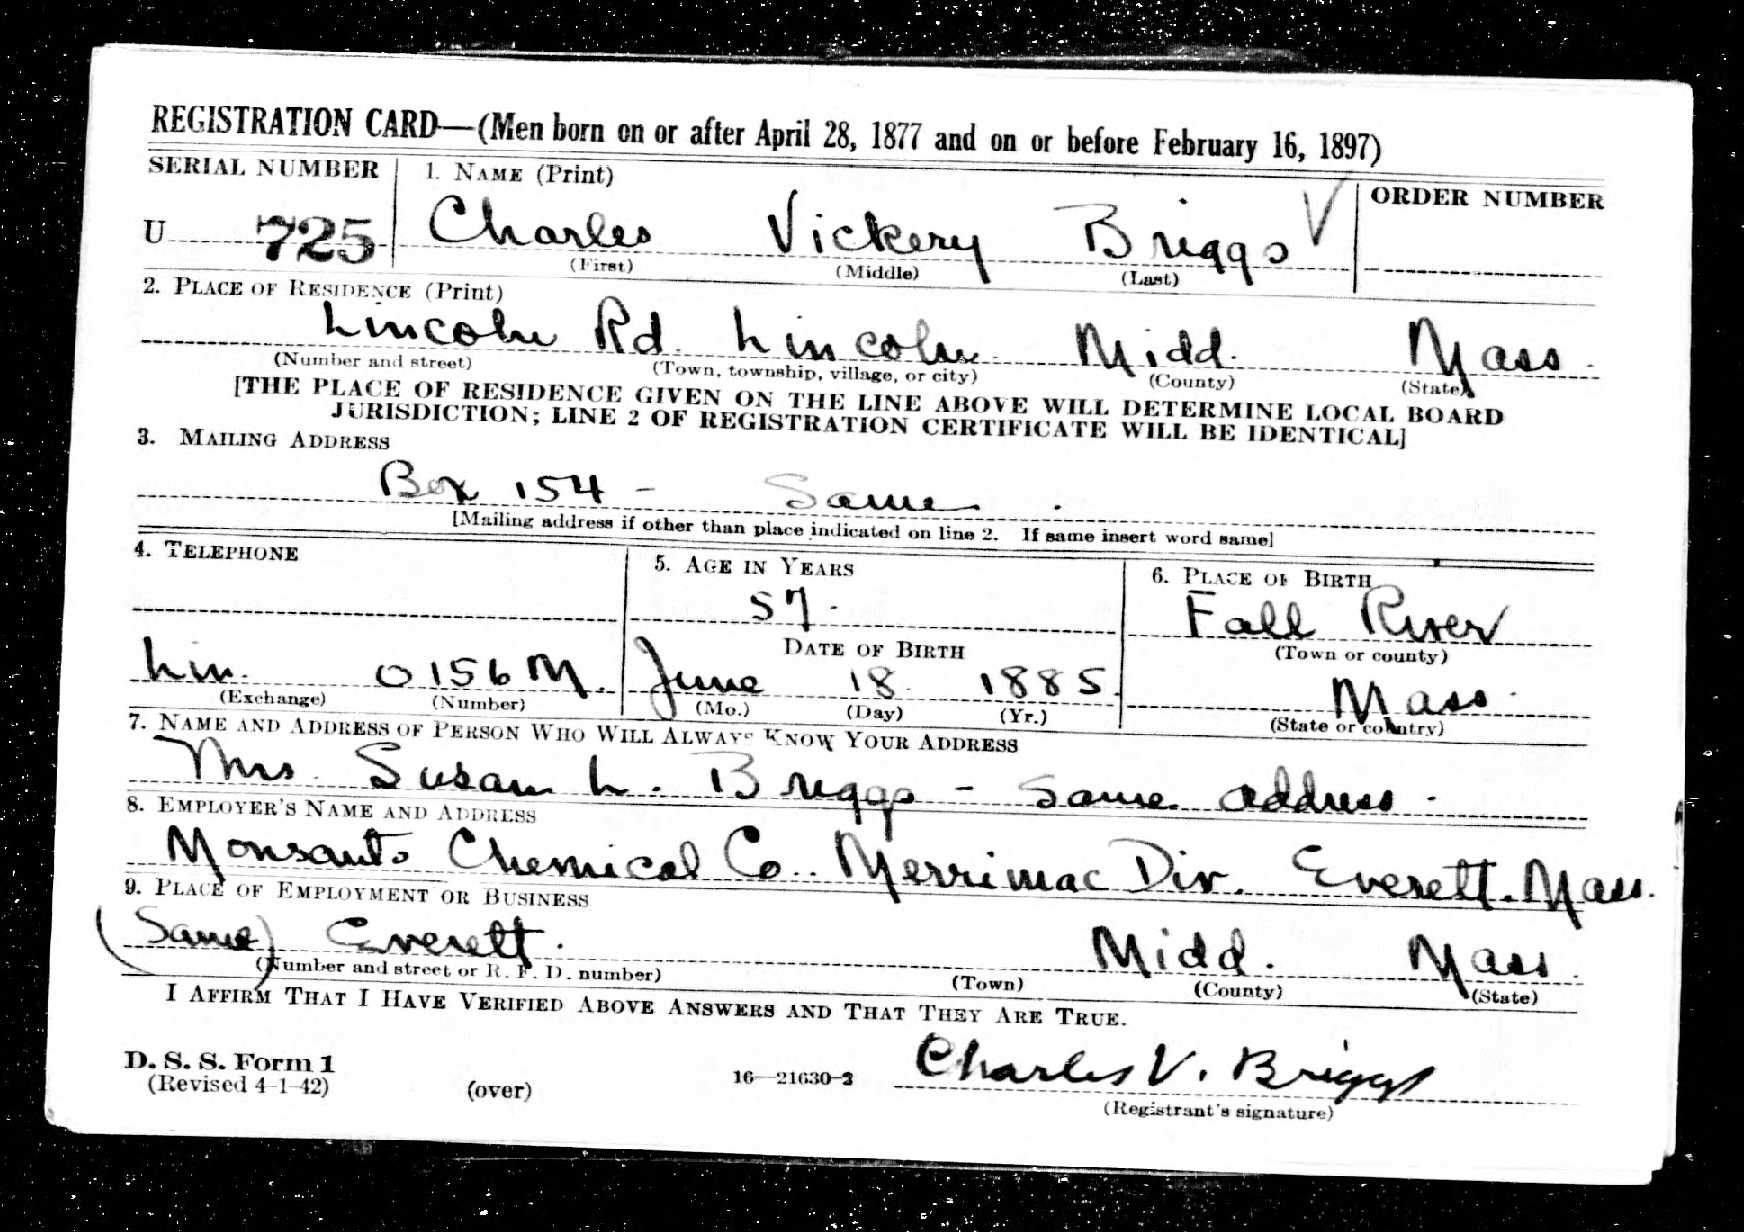 REGISTRATION CARD—(Men born on or after April 28, 1877 and on or before February 16, 1897)
SERIAL NUMBER 1. NAME (Print) ORDER NUMBER
U 725 Charles Vickery Briggs V
(First) (Middle) (Last)
2. PLACE OF RESIDENCE (Print)
Lincoln Rd. Lincoln Midd. Mass.
(Number and street) (Town, township, village, or city) (County) (State)
[THE PLACE OF RESIDENCE GIVEN ON THE LINE ABOVE WILL DETERMINE LOCAL BOARD
JURISDICTION; LINE 2 OF REGISTRATION CERTIFICATE WILL BE IDENTICAL]
3. MAILING ADDRESS
Box 154 - Same.
[Mailing address if other than place indicated on line 2. If same insert word same]
4. TELEPHONE 5. AGE IN YEARS 6. PLACE OF BIRTH
57. Fall River
DATE OF BIRTH (Town or county)
Lin. 0156 M. June 18 1885. Mass.
(Exchange) (Number) (Mo.) (Day) (Yr.) (State or country)
7. NAME AND ADDRESS OF PERSON WHO WILL ALWAYS KNOW YOUR ADDRESS
Mrs. Susan L. Briggs - Same address.
8. EMPLOYER'S NAME AND ADDRESS
Monsanto Chemical Co. Merrimac Div. Everett. Mass.
9. PLACE OF EMPLOYMENT OR BUSINESS
(Same) Everett. Midd. Mass.
(Number and street or R. F. D. number) (Town) (County) (State)
I AFFIRM THAT I HAVE VERIFIED ABOVE ANSWERS AND THAT THEY ARE TRUE.
D. S. S. Form 1
(Revised 4-1-42) (over) 16—21630-2 Charles V. Briggs
(Registrant's signature)